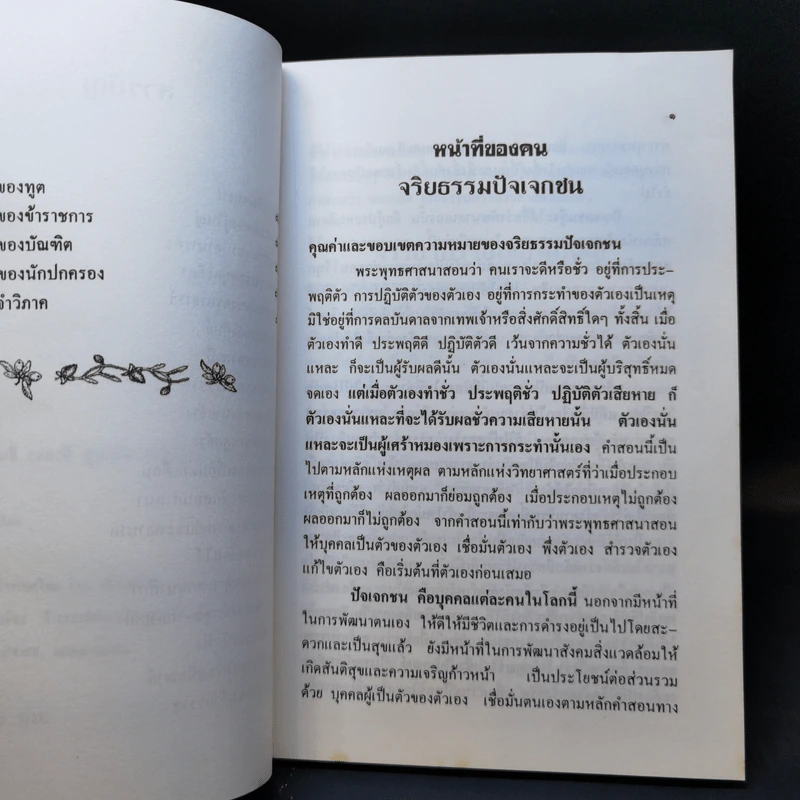 ของทูต
ของข้าราชการ
ของบัณฑิต
ของนักปกครอง
จำวิภาค
๑
หน้าที่ของคน
จริยธรรมปัจเจกชน
คุณค่าและขอบเขตความหมายของจริยธรรมปัจเจกชน
พระพุทธศาสนาสอนว่า คนเราจะดีหรือชั่ว อยู่ที่การประ-
พฤติตัว การปฏิบัติตัวของตัวเอง อยู่ที่การกระทำของตัวเองเป็นเหตุ
มิใช่อยู่ที่การดลบันดาลจากเทพเจ้าหรือสิ่งศักดิ์สิทธิ์ใดๆ ทั้งสิ้น เมื่อ
ตัวเองทำดี ประพฤติดี ปฏิบัติตัวดี เว้นจากความชั่วได้ ตัวเองนั่น
แหละ ก็จะเป็นผู้รับผลดีนั้น ตัวเองนั่นแหละจะเป็นผู้บริสุทธิ์หมด
จดเอง แต่เมื่อตัวเองทำชั่ว ประพฤติชั่ว ปฏิบัติตัวเสียหาย ก็
ตัวเองนั่นแหละที่จะได้รับผลชั่วความเสียหายนั้น ตัวเองนั่น
แหละจะเป็นผู้เศร้าหมองเพราะการกระทำนั้นเอง คำสอนนี้เป็น
ไปตามหลักแห่งเหตุผล ตามหลักแห่งวิทยาศาสตร์ที่ว่าเมื่อประกอบ
เหตุที่ถูกต้อง ผลออกมาก็ย่อมถูกต้อง เมื่อประกอบเหตุไม่ถูกต้อง
ผลออกมาก็ไม่ถูกต้อง จากคำสอนนี้เท่ากับว่าพระพุทธศาสนาสอน
ให้บุคคลเป็นตัวของตัวเอง เชื่อมั่นตัวเอง พึ่งตัวเอง สำรวจตัวเอง
แก้ไขตัวเอง คือเริ่มต้นที่ตัวเองก่อนเสมอ
ปัจเจกชน คือบุคคลแต่ละคนในโลกนี้ นอกจากมีหน้าที่
ในการพัฒนาตนเอง ให้ดีให้มีชีวิตและการดำรงอยู่เป็นไปโดยสะ-
ดวกและเป็นสุขแล้ว ยังมีหน้าที่ในการพัฒนาสังคมสิ่งแวดล้อมให้
เกิดสันติสุขและความเจริญก้าวหน้า เป็นประโยชน์ต่อส่วนรวม
ด้วย บุคคลผู้เป็นตัวของตัวเอง เชื่อมั่นตนเองตามหลักคำสอนทาง